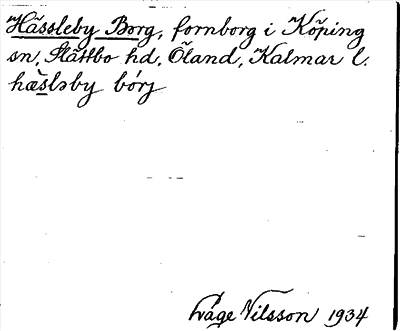 Hässleby Borg, fornborg i Köping
sn, Slättbo hd, Öland, Kalmar l.
hæ̀slǝby bórj
Åge Nilsson 1934